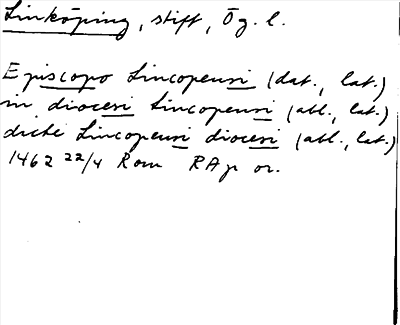 Linköping, stift, Ög. l.
Episcopo Lincopensi (dat., lat.)
in diocesi Lincopensi (abl., lat.)
dicte Lincopensi diocesi (abl., lat.)
1462 22/4 Rom RAp or.